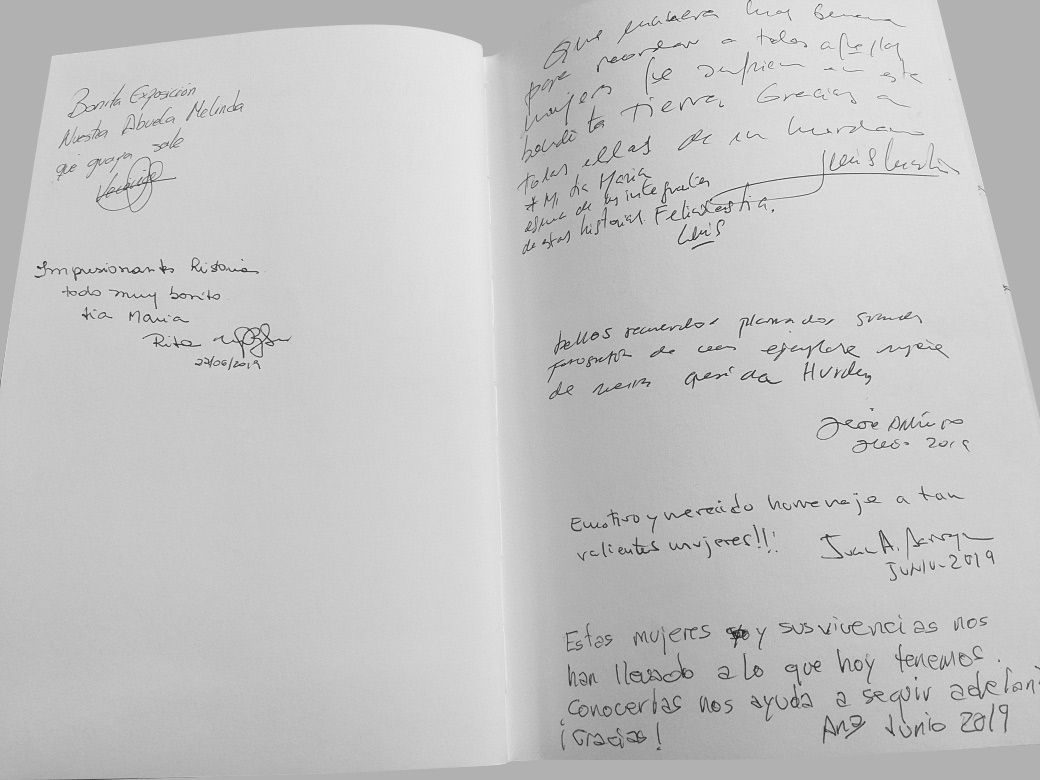 Bonita Exposición
Nuestra Abuela Melinda
que guapa sale
Impresionantes historias
todo muy bonito
tia Maria
Rita
22/06/2019
Que manera muy buena
para recordar a todas aquellas
mujeres que sufrieron en esta
bendita tierra Gracias a
todas ellas de un hurdano
Luis
* Mi tia Maria
es una de las integrantes
de estas historias. Felicastia.
Luis
bellos recuerdos plasmados grandes
fotografia de unas ejemplares mujeres
de nuestra querida Hurdes
José
2019
Emotivo y merecido homenaje a tan
valientes mujeres!!!
Juan A.
JUNIO-2019
Estas mujeres y sus vivencias nos
han llevado a lo que hoy tenemos.
Conocerlas nos ayuda a seguir adelante
¡Gracias!
Ana Junio 2019